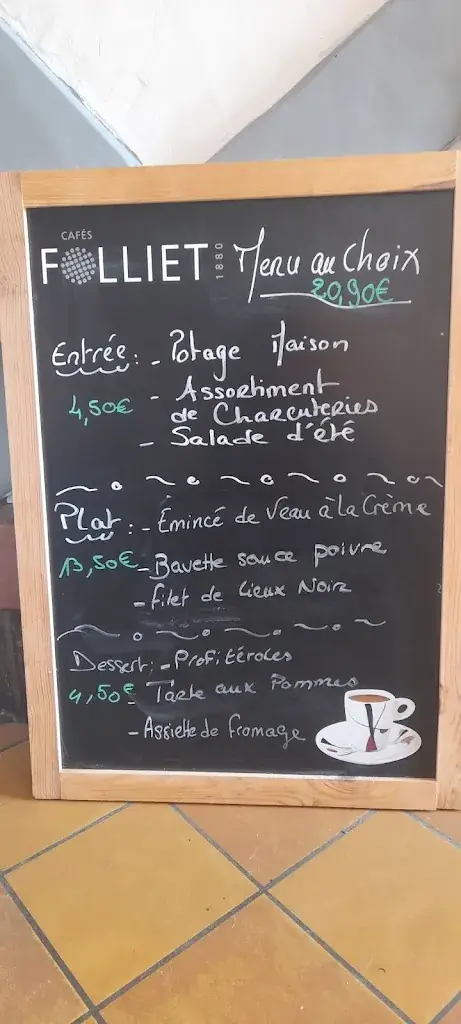 CAFÉS
FOLLIET 1880
Menu au Choix
20,90€
Entrée : - Potage Maison
4,50€ - Assortiment
de Charcuteries
- Salade d'été
Plat : - Émincé de Veau à la Crème
13,50€ - Bavette sauce poivre
- Filet de Lieux Noir
Dessert : - Profitéroles
4,50€ - Tarte aux Pommes
- Assiette de fromage